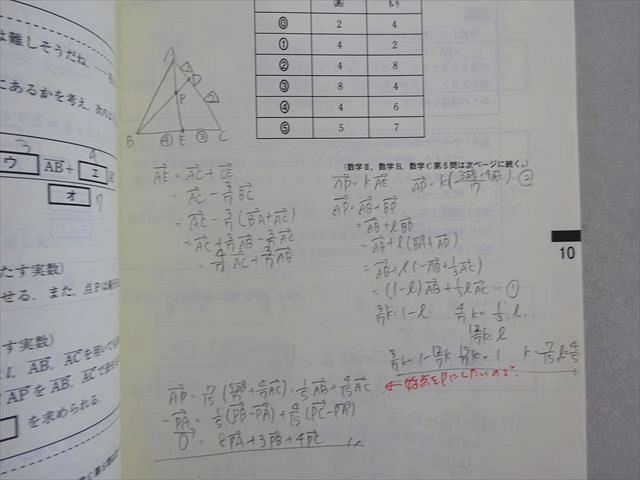 は難しそうだね。
にあるかを考え、次の
3
ウ
AB +
4
エ
オ
7
たす実数)
せる。また、点Pは
す実数)
l, AB, ACを用いて
APをAB, ACで
を求められる。
⓪ 2 4
① 4 2
② 4 8
③ 8 4
④ 4 6
⑤ 5 7
A
P
D
B ④ E ③ C
(数学Ⅱ，数学B，数学C第5問は次ページに続く。)
10
AE = AC + CE
= AC - 3/7 BC
= AC - 3/7 (BA + AC)
= AC + 3/7 AB - 3/7 AC
= 4/7 AC + 3/7 AB
AP = k AE AP = k(3AB+4AC/7) ②
AP = AB + BP
= AB + l BD
= AB + l (BA + AD)
= AB + l (-AB + 1/3 AC)
= (1-l) AB + 1/3 l AC ①
3/7 k = 1 - l 4/7 k = 1/3 l
12/7 k = l
3/7 k = 1 - 12/7 k
← 始点をPにしたいので
AP = 7/15 (3/7 AB + 4/7 AC) = 1/5 AB + 4/15 AC
-PA = 1/5 (PB - PA) + 4/15 (PC - PA)
0 = 8PA + 3PB + 4PC